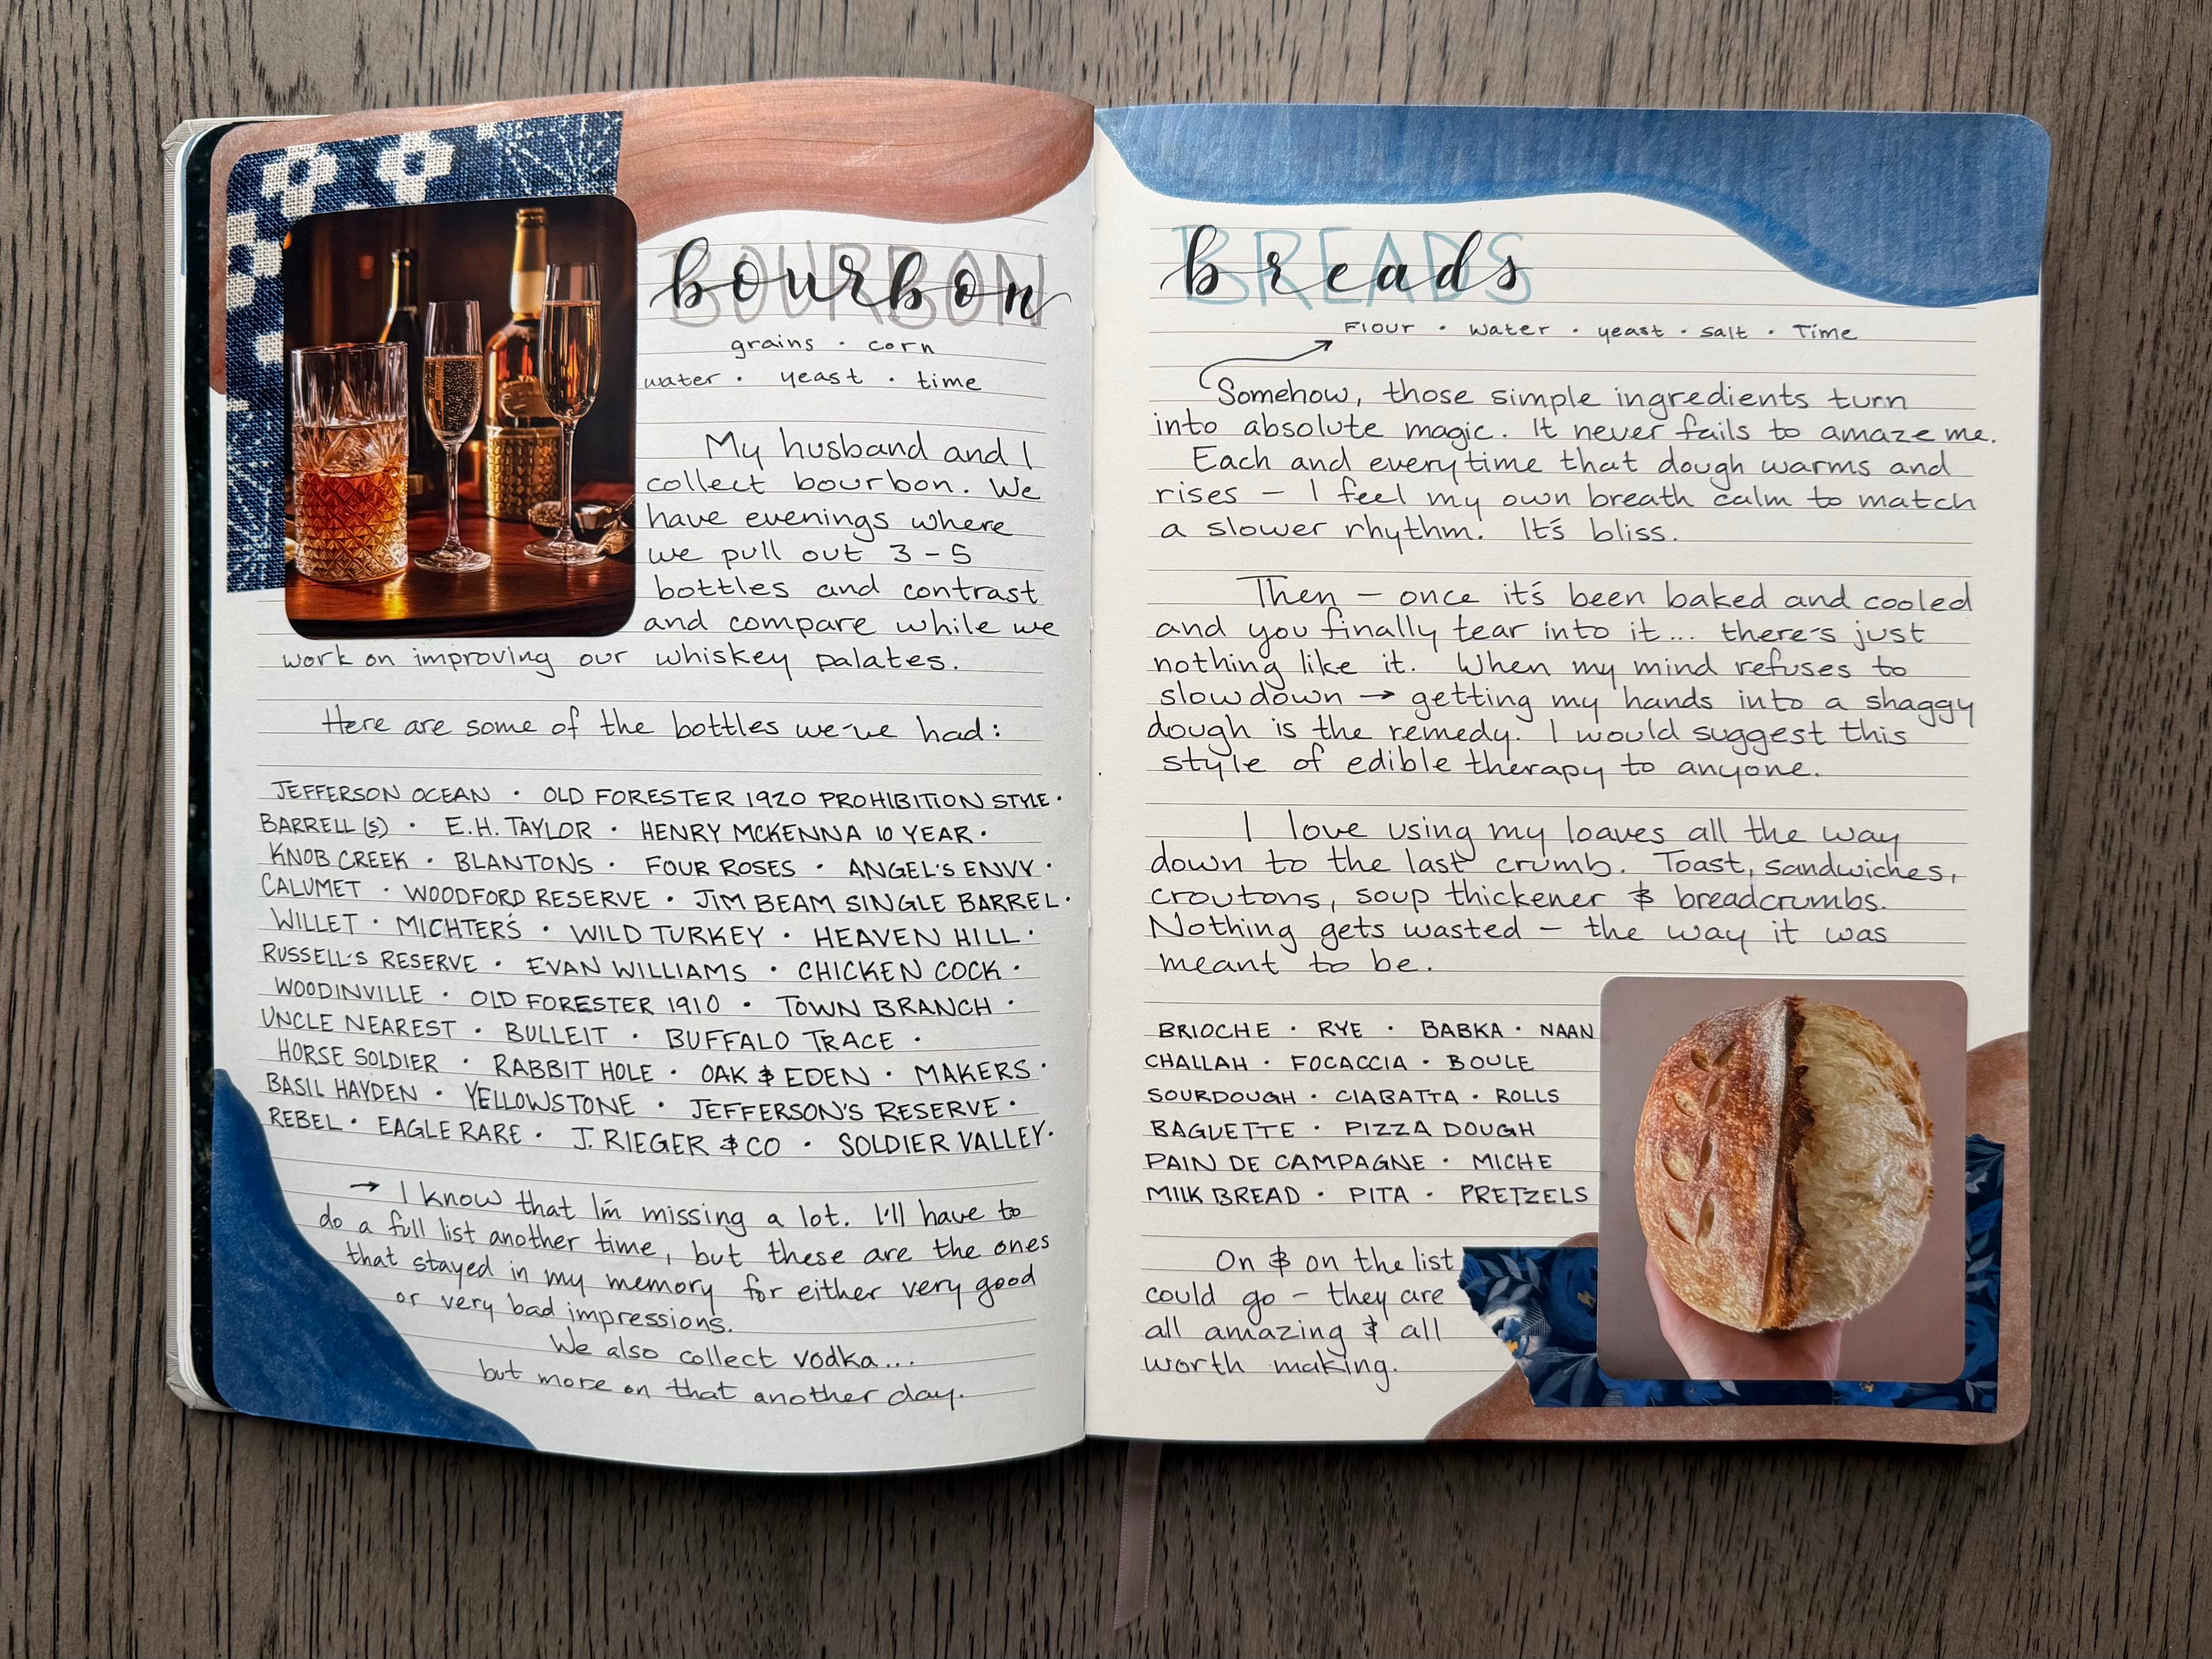 BOURBON
bourbon
grains · corn
water · yeast · time
My husband and I
collect bourbon. We
have evenings where
we pull out 3-5
bottles and contrast
and compare while we
work on improving our whiskey palates.
Here are some of the bottles we've had:
JEFFERSON OCEAN · OLD FORESTER 1920 PROHIBITION STYLE ·
BARRELL (S) · E.H. TAYLOR · HENRY MCKENNA 10 YEAR ·
KNOB CREEK · BLANTONS · FOUR ROSES · ANGEL'S ENVY ·
CALUMET · WOODFORD RESERVE · JIM BEAM SINGLE BARREL ·
WILLET · MICHTER'S · WILD TURKEY · HEAVEN HILL ·
RUSSELL'S RESERVE · EVAN WILLIAMS · CHICKEN COCK ·
WOODINVILLE · OLD FORESTER 1910 · TOWN BRANCH ·
UNCLE NEAREST · BULLEIT · BUFFALO TRACE ·
HORSE SOLDIER · RABBIT HOLE · OAK & EDEN · MAKERS ·
BASIL HAYDEN · YELLOWSTONE · JEFFERSON'S RESERVE ·
REBEL · EAGLE RARE · J. RIEGER & CO · SOLDIER VALLEY ·
→ I know that I'm missing a lot. I'll have to
do a full list another time, but these are the ones
that stayed in my memory for either very good
or very bad impressions.
We also collect vodka...
but more on that another day.
BREADS
breads
Flour · Water · yeast · salt · Time
Somehow, those simple ingredients turn
into absolute magic. It never fails to amaze me.
Each and everytime that dough warms and
rises – I feel my own breath calm to match
a slower rhythm. It's bliss.
Then – once it's been baked and cooled
and you finally tear into it... there's just
nothing like it. When my mind refuses to
slow down → getting my hands into a shaggy
dough is the remedy. I would suggest this
style of edible therapy to anyone.
I love using my loaves all the way
down to the last crumb. Toast, sandwiches,
croutons, soup thickener & breadcrumbs.
Nothing gets wasted – the way it was
meant to be.
BRIOCHE · RYE · BABKA · NAAN
CHALLAH · FOCACCIA · BOULE
SOURDOUGH · CIABATTA · ROLLS
BAGUETTE · PIZZA DOUGH
PAIN DE CAMPAGNE · MICHE
MILK BREAD · PITA · PRETZELS
On & on the list
could go – they are
all amazing & all
worth making.